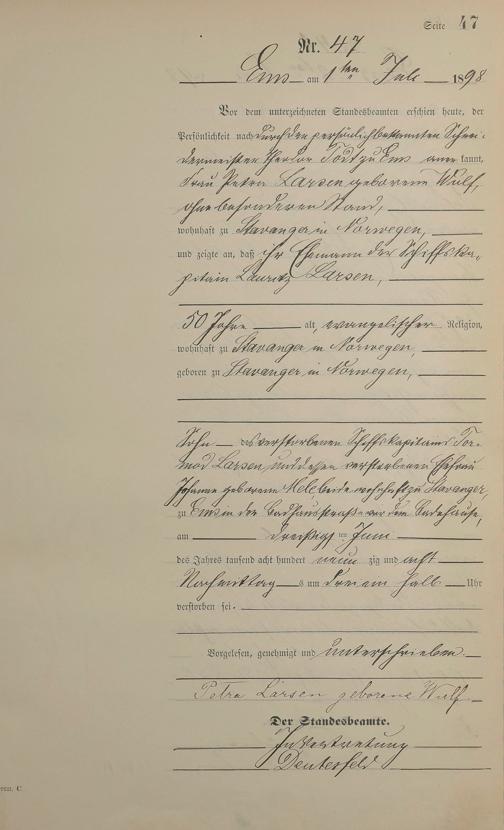 Seite 47
Nr. 47
Ems am 1ten Juli 1898
Vor dem unterzeichneten Standesbeamten erschien heute, der
Persönlichkeit nach durch den persönlich bekannten Schnei-
dermeister Theodor zu Ems aner kannt,
Frau Petra Larsen geborene Wulf,
ohne besonderen Stand,
wohnhaft zu Stavanger in Norwegen,
und zeigte an, daß ihr Ehemann der Schiffska-
pitain Lauritz Larsen,
50 Jahre alt, evangelischer Religion,
wohnhaft zu Stavanger in Norwegen,
geboren zu Stavanger in Norwegen,
Sohn des verstorbenen Schiffskapitains Tor-
mod Larsen, und dessen verstorbenen Ehefrau
Johanne geborene beide wohnhaft zu Stavanger,
zu Ems in der Badhausstraße vor dem Badehause,
am dreißigsten Juni
des Jahres tausend acht hundert neun zig und acht
Nachmittag s um drei ein halb Uhr
verstorben sei.
Vorgelesen, genehmigt und unterschrieben.
Petra Larsen geborene Wulf
Der Standesbeamte.
In Vertretung